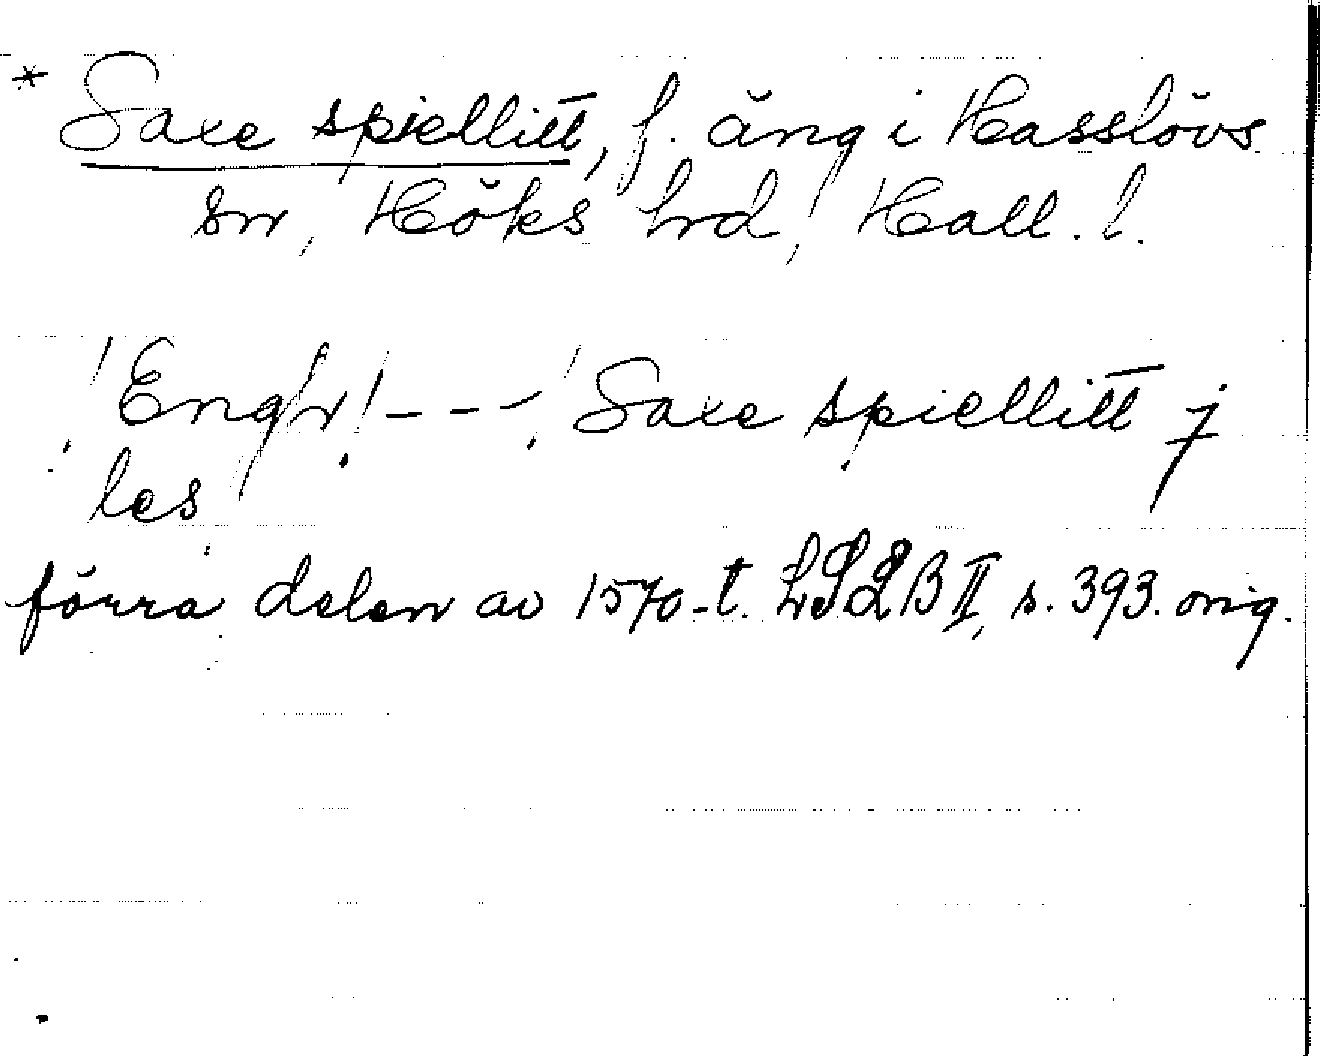 * Saxe spiellitt, f. äng i Hasslövs
sn, Höks hrd, Hall. l.
Engh --- Saxe spiellitt j
les
förra delen av 1570-t. LSLB II, s. 393. orig.